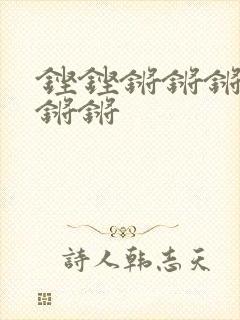 铿铿锵锵锵
锵锵
詩人韩志天